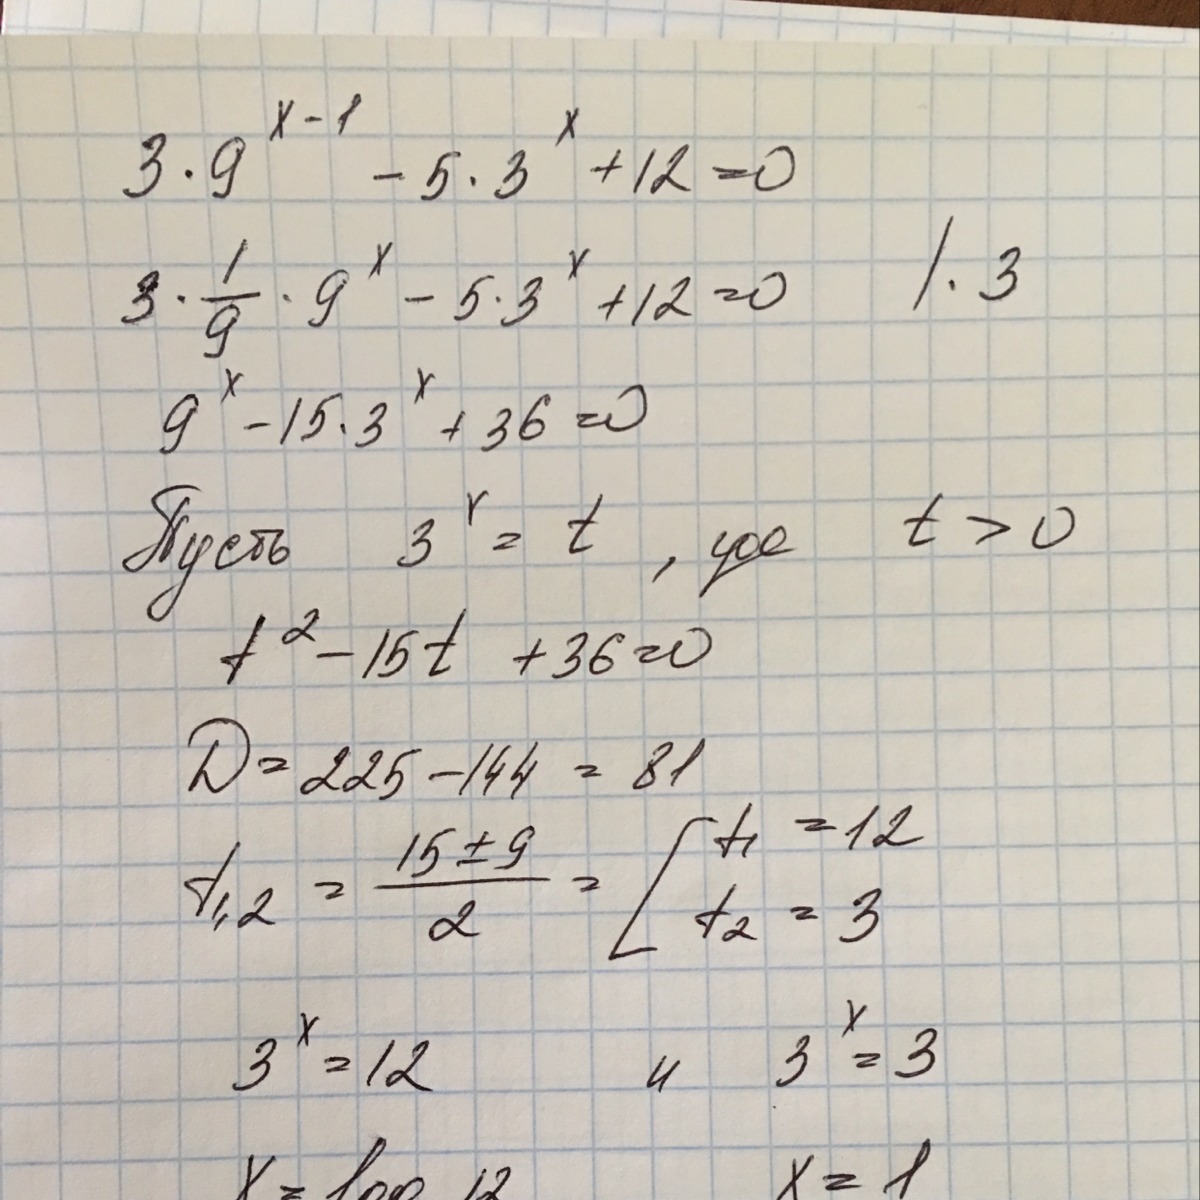 3·9^(x-1) - 5·3^x + 12 = 0
3·1/9·9^x - 5·3^x + 12 = 0 /·3
9^x - 15·3^x + 36 = 0
Пусть 3^x = t, где t > 0
t² - 15t + 36 = 0
D = 225 - 144 = 81
t1,2 = (15 ± 9)/2 = [ t1 = 12
t2 = 3
3^x = 12 и 3^x = 3
x = log 12 x = 1